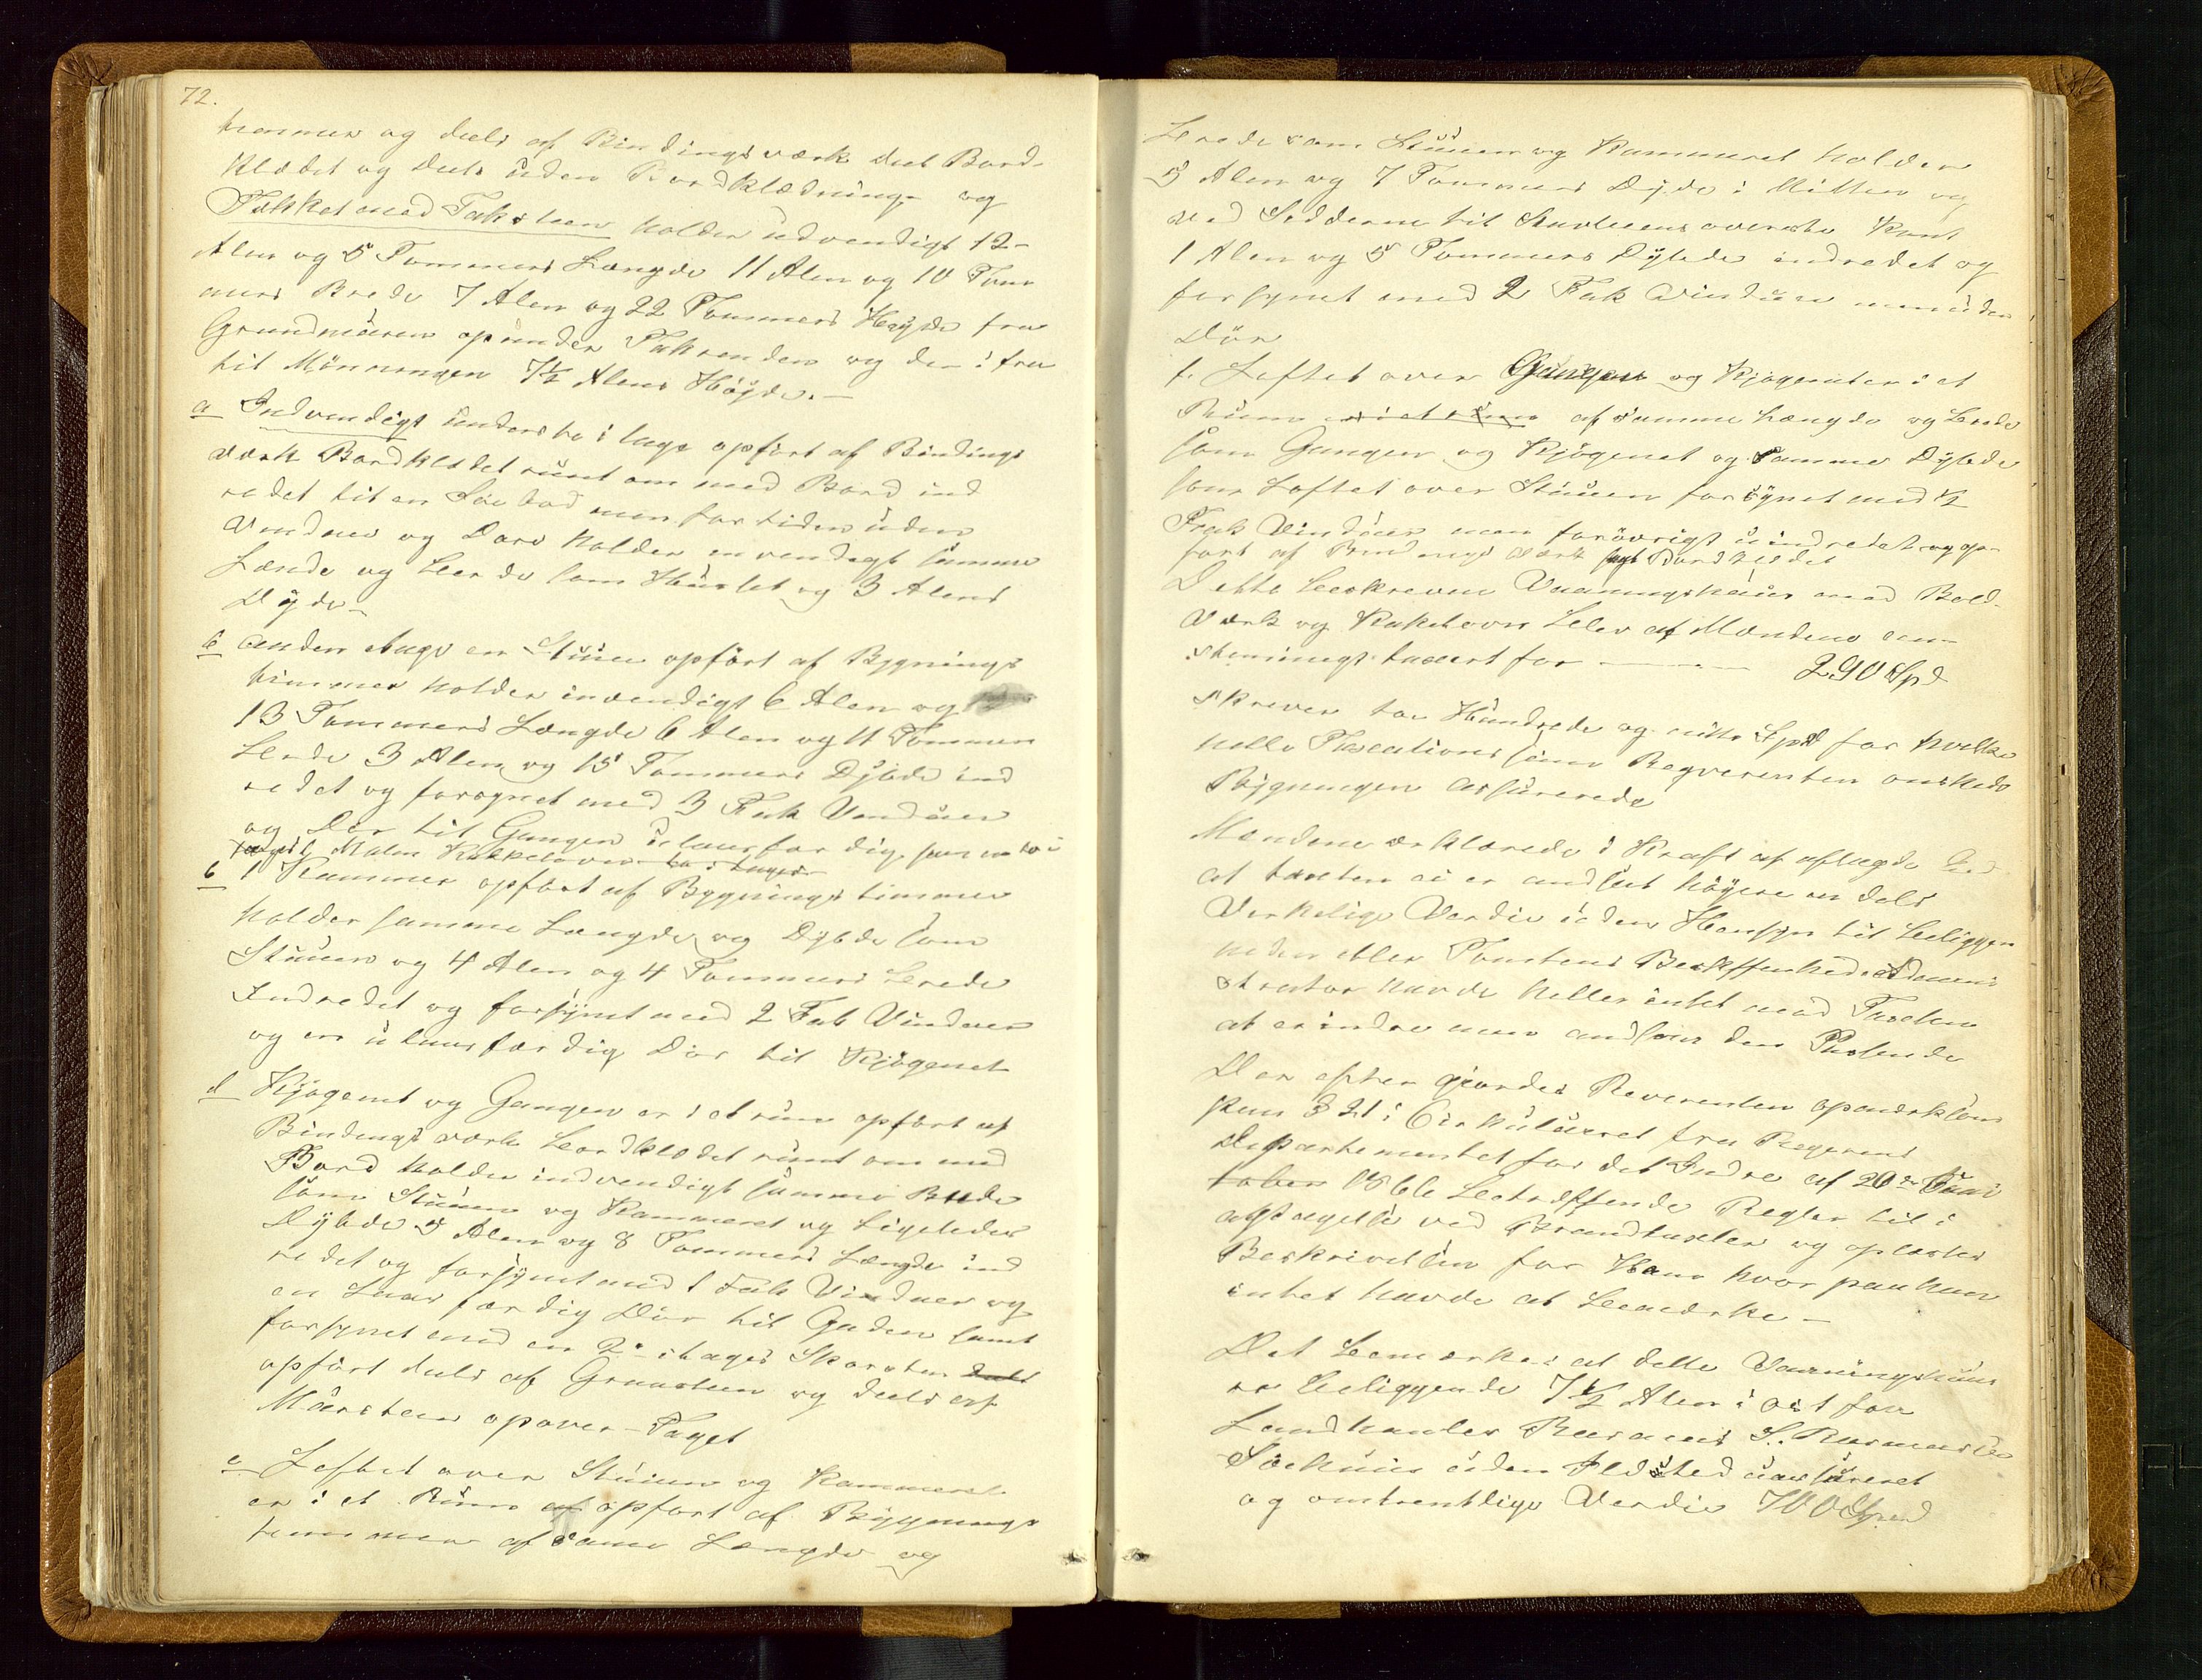 72.
tømmer og deels af Bindingsværk deels Bord-
klædet og deels uden Bordklædning og
Tækket med Taksteen holder udvendigt 12-
Alen og 5 Tommers Længde 11 Alen og 10 Tom
mers Brede 7 Alen og 22 Tommers Høyde fra
Grundmuren op under Takrenden og der i fra
til Mønningen 7½ Alens Høyde. —
a Indvendigt understa i tage opført af Bindings
værk Bordklædet rundt om med Bord ind
redet til en Søebod men for tiden uden
Vinduer og Døre holder envendigt samme
Længde og Brede som Huuset og 3 Alens
Dyde —
b anden etage en Stuue opført af Bygnings
tømmer holder invendigt 6 Alen og
13 Tommers Længde 6 Alen og 11 Tommer
Brede 3 Alen og 15 Tommers Dybde ind
redet og forsynet med 3 Fak Vinduer
og Dør til Gangen i laasfærdig
Malm Kakkelovn to i tages
c 1 Kammer opført af Bygnings tømmer
holder samme Længde og Dybde som
Stuuen og 4 Alen og 4 Tommers Brede
Indredet og forsynet med 2 Fak Vinduer
og en ulaasfærdig Dør til Kjøgenet
d Kjøgenet og Gangen er i et rum opført af
Bindingsværk bordklædet rundt om med
Bord holder indvendigt samme Brede
som Stuuen og Kammeret og Ligeledes
Dybde 5 Alen og 8 Tommers Længde ind
redet og forsynet med 1 Fak Vinduer og
en Laasfærdig Dør til Gaden samt
forsynet med en 2 etages Skorsten deels
opført deels af Graasteen og deels af
Muursteen op over Taget
e Loftet over Stuuen og Kammeret
er i et Rum af opført af Bygnings
tømmer af samme Længde og
Brede som Stuuen og Kammeret holder
3 Alen og 7 Tommers Dyde i Mitten og
ved Sidderne til Stavleiens øverste Kant
1 Alen og 5 Tommers Dybde indredet og
forsynet med 2 Fak Vinduer men uden
Dør
f. Loftet over Gangen og Kjøgenet er i et
Rum af samme Længde og Brede
som Gangen og Kjøgenet og samme Dybde
som Loftet over Stuuen forsynet med ½
Fak Vinduer men forøvrigt uindredet og op-
ført af Bindings værk samt Bordklædet
Dette beskreven Vaaningshuus med Bold-
værk og Kakelovn blev af Mændene een-
stemmigt taxert for — 290 Spd
skriver to Hundrede og nitti Spd for hvilke
hele Taxations sum Reqverenten ønskede
Bygningen assurerede
Mændene erklærede i Kraft af aflagde Eed
at taxten ei er andsat høyere en dets
Verkelige Værdie uden Hensyn til beliggen
heden eller Tomtens Beskaffenhed
havde heller intet mod Taxten
at erindre men andsaa den Passende
Der efter gjordes Reqverenten opmerksom
paa § 21 i Cirkulæret fra Regjerens
Departementet for det Indre af 20de Juni
tober 1866 betræffende Regler til i
agttagelse ved Brandtaxter og oplæstes
Beskrivelsen for Ham hvor paa han
intet havde at bemærke —
Det bemærkes at dette Vaaningshuus
er beliggende 7½ Alen i Øst for
Landhandler Rasmus S. Rasmussens
Søehuus uden Ildsted uassureret
og omtrentlige Verdie 700 Spd